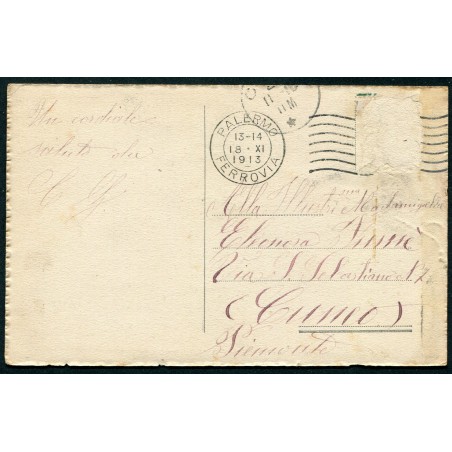 Un cordiale
saluto da
PALERMO
13-14
18 · XI
1913
FERROVIA
11
11M
Alla Illustrma Madamigella
Eleonora
Via S. Sebastiano N 7
(Cuneo)
Piemonte